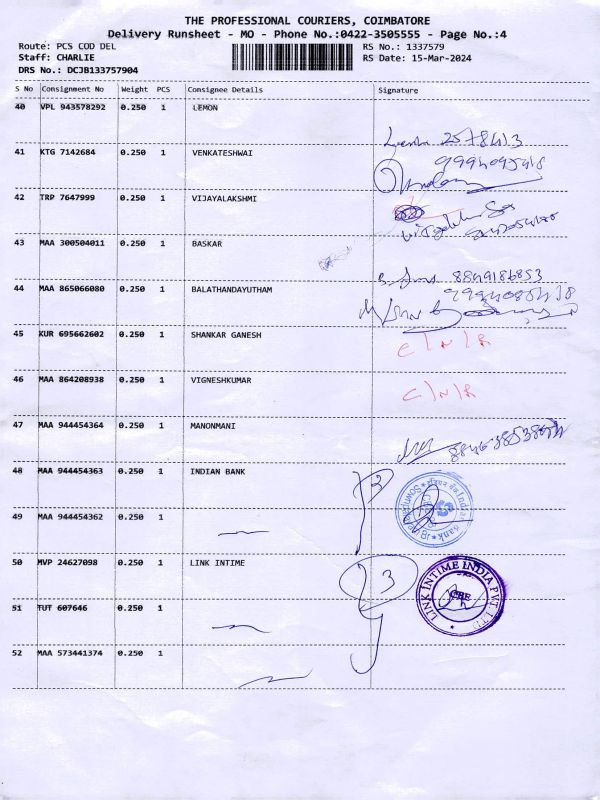 THE PROFESSIONAL COURIERS, COIMBATORE
Delivery Runsheet - MO - Phone No.:0422-3505555 - Page No.:4
Route: PCS COD DEL
RS No.: 1337579
Staff: CHARLIE
RS Date: 15-Mar-2024
DRS No.: DCJB133757904
S No Consignment No Weight PCS Consignee Details Signature
40 VPL 943578292 0.250 1 LEMON
41 KTG 7142684 0.250 1 VENKATESHWAI
42 TRP 7647999 0.250 1 VIJAYALAKSHMI
43 MAA 300504011 0.250 1 BASKAR
8849186853
44 MAA 865066080 0.250 1 BALATHANDAYUTHAM
45 KUR 695662602 0.250 1 SHANKAR GANESH
C/N/R
46 MAA 864208938 0.250 1 VIGNESHKUMAR
C/N/R
47 MAA 944454364 0.250 1 MANONMANI
48 MAA 944454363 0.250 1 INDIAN BANK
3
49 MAA 944454362 0.250 1
50 MVP 24627098 0.250 1 LINK INTIME
3
LINK INTIME INDIA PVT LTD
CBE
51 TUT 607646 0.250 1
52 MAA 573441374 0.250 1